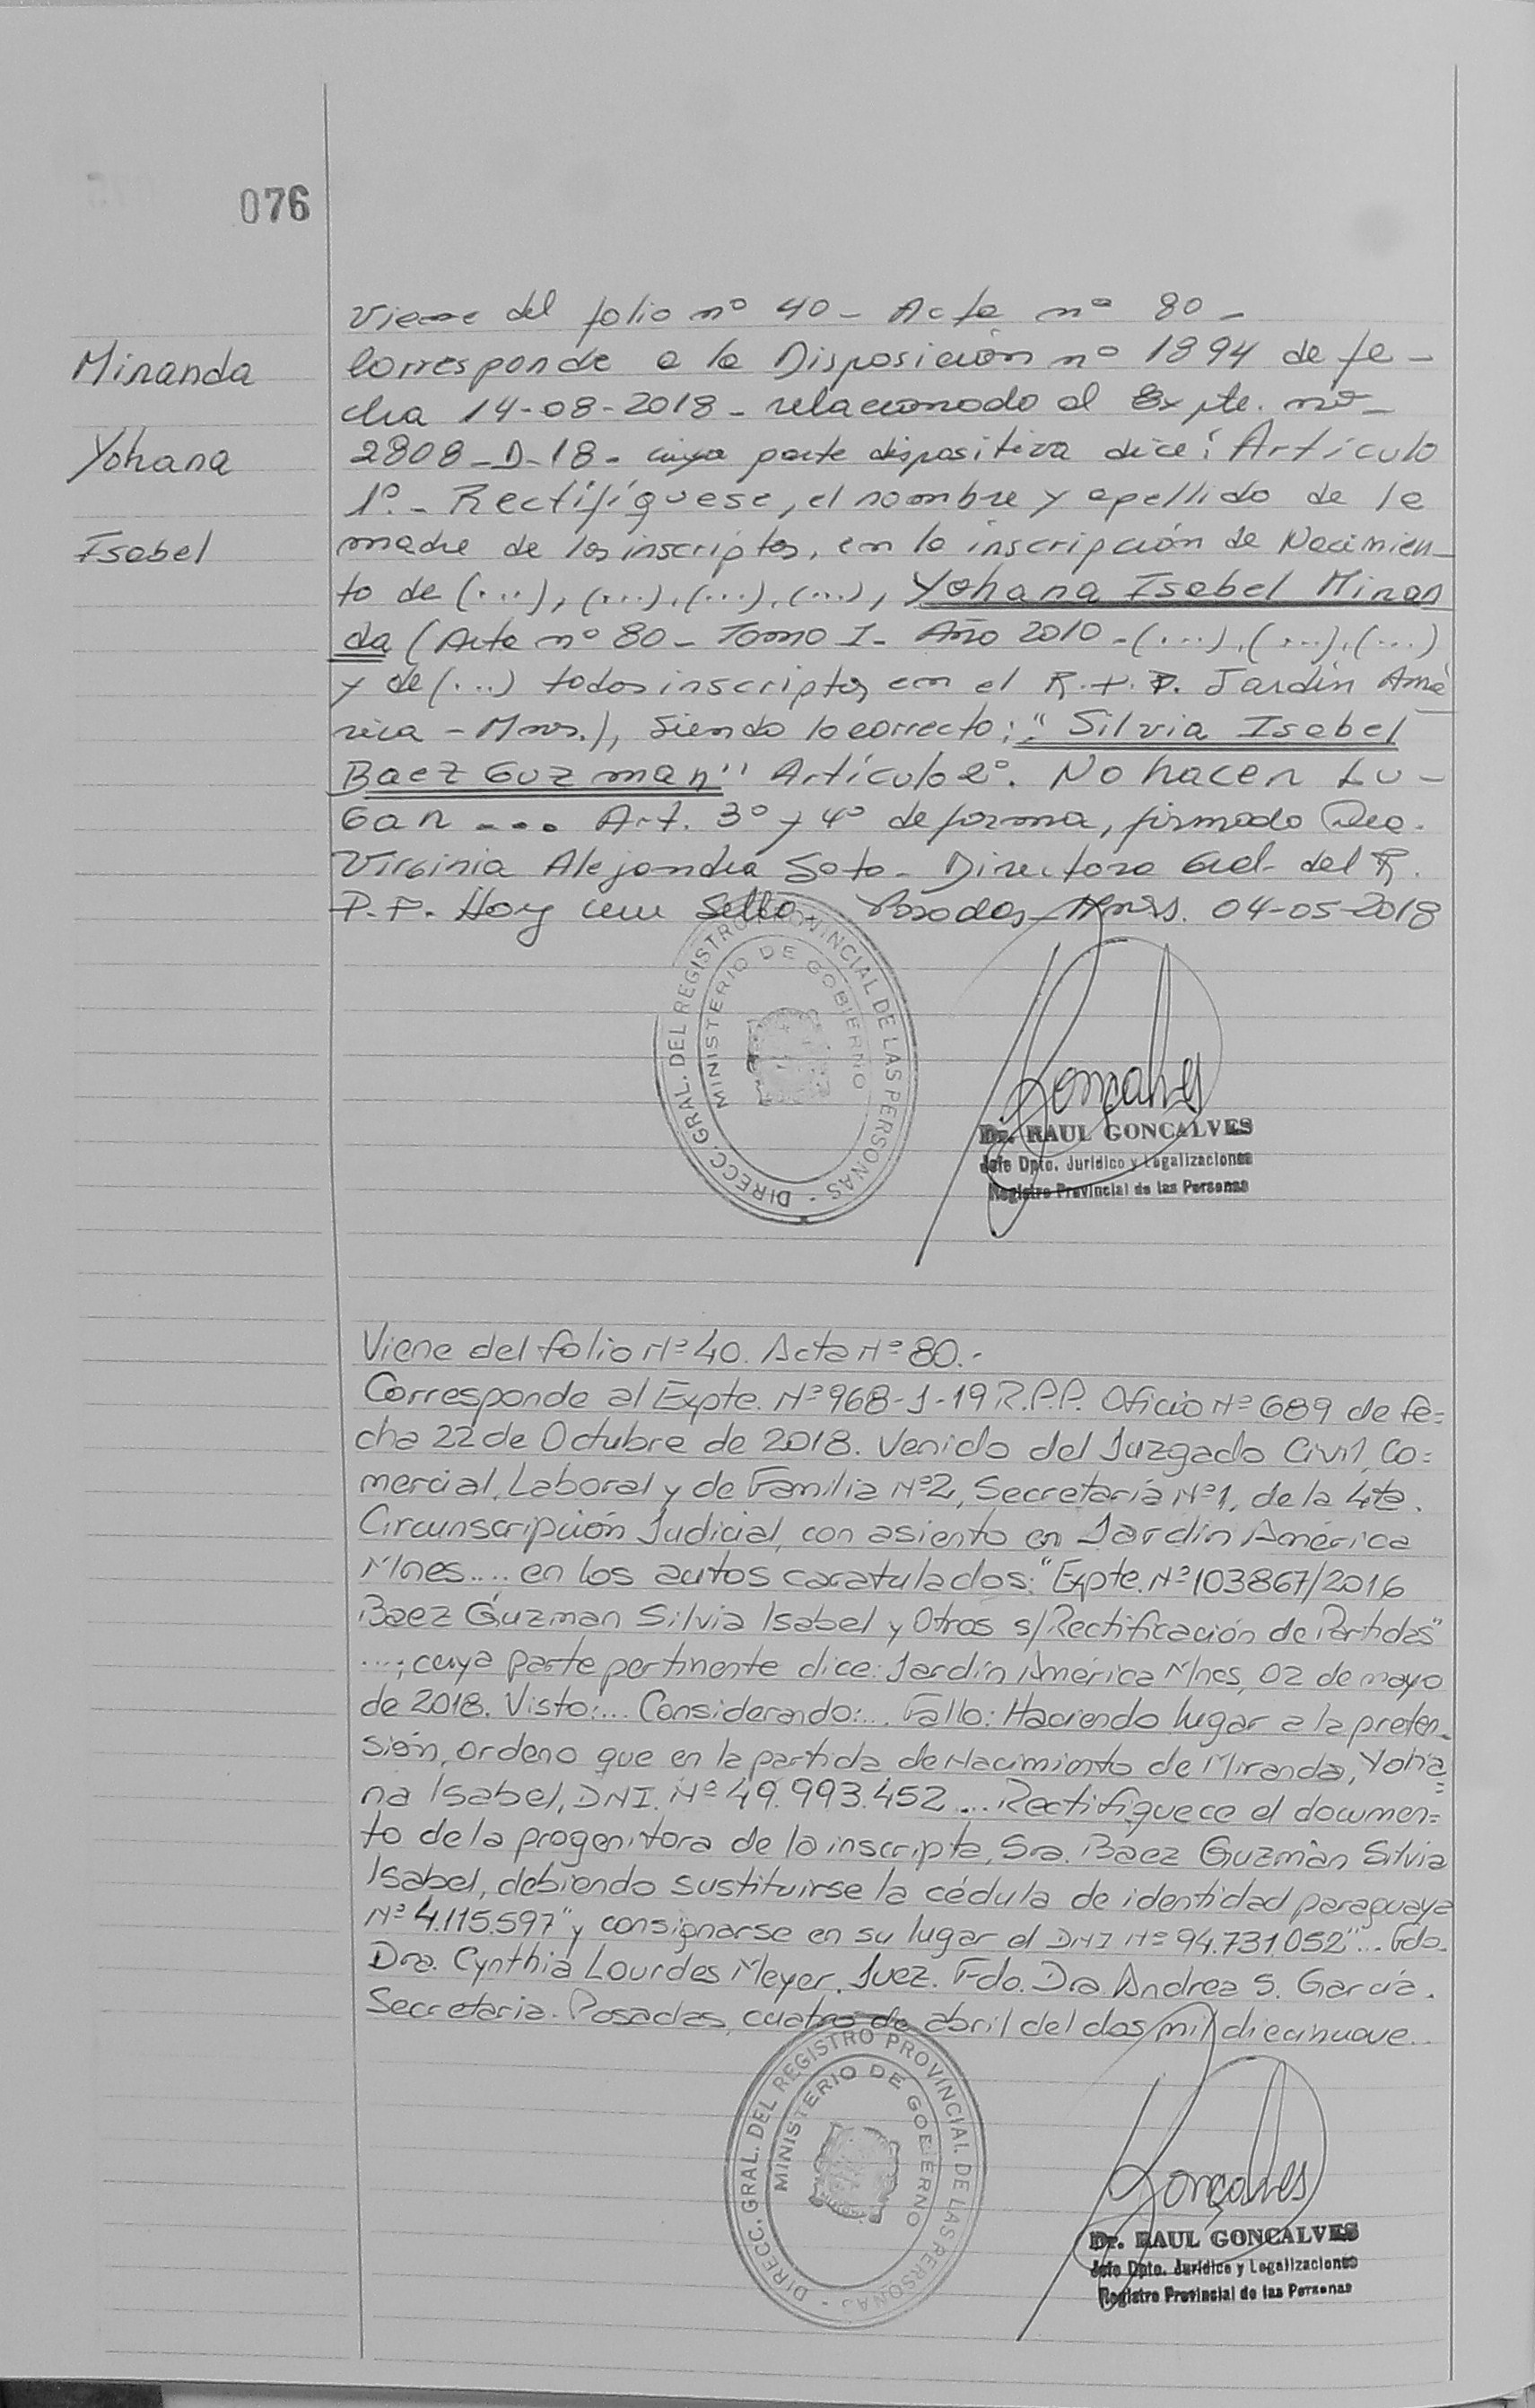 076
Miranda
Yohana
Isabel
Viene del folio nº 40 - Acta nº 80 -
Corresponde a la Disposición nº 1894 de fe -
cha 14-08-2018 - relacionado al Expte. nº -
2808 - D - 18 - cuya parte dispositiva dice: Artículo
1º - Rectifíquese, el nombre y apellido de la
madre de los inscriptos, en la inscripción de Nacimien -
to de (...), (...), (...), (...), Yohana Isabel Miran
da (Acta nº 80 - Tomo I - Año 2010 - (...), (...), (...)
y de (...) todos inscriptos en el R.P.P. Jardín Amé
rica - Mnes.), Siendo lo correcto: "Silvia Isabel
Baez Guzman" Artículo 2º. No hacen Lu -
Gar ... Art. 3º y 4º de forma, firmado Dra.
Virginia Alejandra Soto - Directora Gral. del R.
P.P. Hoy un Sello - Posadas - Mnes. 04-05-2018
DIRECC. GRAL. DEL REGISTRO PROVINCIAL DE LAS PERSONAS -
MINISTERIO DE GOBIERNO
Gonçalves
Dr. RAUL GONCALVES
Jefe Dpto. Jurídico y Legalizaciones
Registro Provincial de las Personas
Viene del folio Nº 40. Acta Nº 80.-
Corresponde al Expte. Nº 968-J-19 R.P.P. Oficio Nº 689 de fe=
cha 22 de Octubre de 2018. Venido del Juzgado Civil, Co=
mercial, Laboral y de Familia Nº2, Secretaría Nº1, de la 4ta.
Circunscripción Judicial, con asiento en Jardín América
Mnes.... en los autos caratulados: "Expte. Nº 103867/2016
Baez Guzman Silvia Isabel y Otros s/Rectificación de Partidas"
....; cuya parte pertinente dice: Jardín América Mnes, 02 de mayo
de 2018. Visto:... Considerando:... Fallo: Haciendo lugar a la preten-
sión, ordeno que en la partida de Nacimiento de Miranda, Yoha
=
na Isabel, DNI. Nº 49.993.452.... Rectifiquece el documen=
to de la progenitora de la inscripta, Sra. Baez Guzmán Silvia
Isabel, debiendo sustituirse la cédula de identidad paraguaya
Nº 4.115.597" y consignarse en su lugar el DNI Nº 94.731.052"... Fdo.
Dra. Cynthia Lourdes Meyer. Juez. Fdo. Dra. Andrea S. García.
Secretaria. Posadas, cuatro de abril del dos mil diecinueve..
DIRECC. GRAL. DEL REGISTRO PROVINCIAL DE LAS PERSONAS -
MINISTERIO DE GOBIERNO
Gonçalves
Dr. RAUL GONCALVES
Jefe Dpto. Jurídico y Legalizaciones
Registro Provincial de las Personas